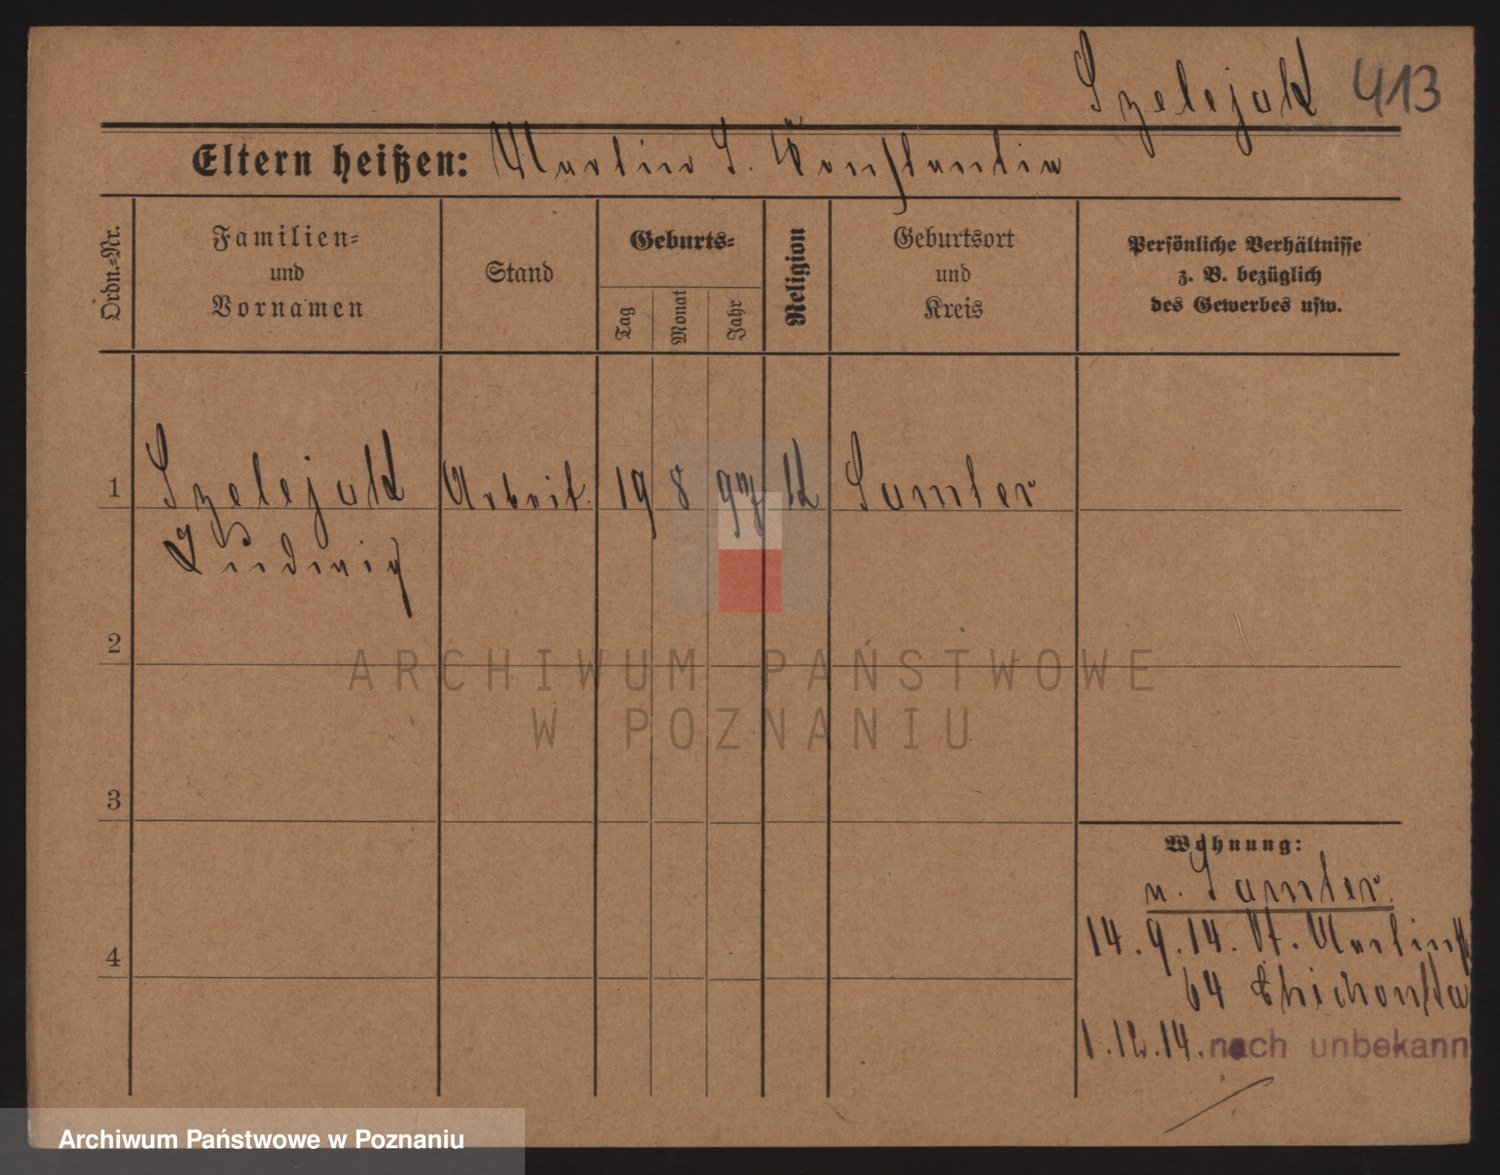 Szelejak 413
Eltern heißen: Martin S. Konstantia
Ordn.-Nr.
Familien-
und
Vornamen
Stand
Geburts-
Tag
Monat
Jahr
Religion
Geburtsort
und
Kreis
Persönliche Verhältnisse
z. B. bezüglich
des Gewerbes usw.
1 Szelejak Arbeit. 19 8 97 K Samter
Ludwig
2
ARCHIWUM PAŃSTWOWE
W POZNANIU
3
Wohnung:
n. Samter.
14.9.14. St. Martinst
64
1.12.14. nach unbekann
4
Archiwum Państwowe w Poznaniu